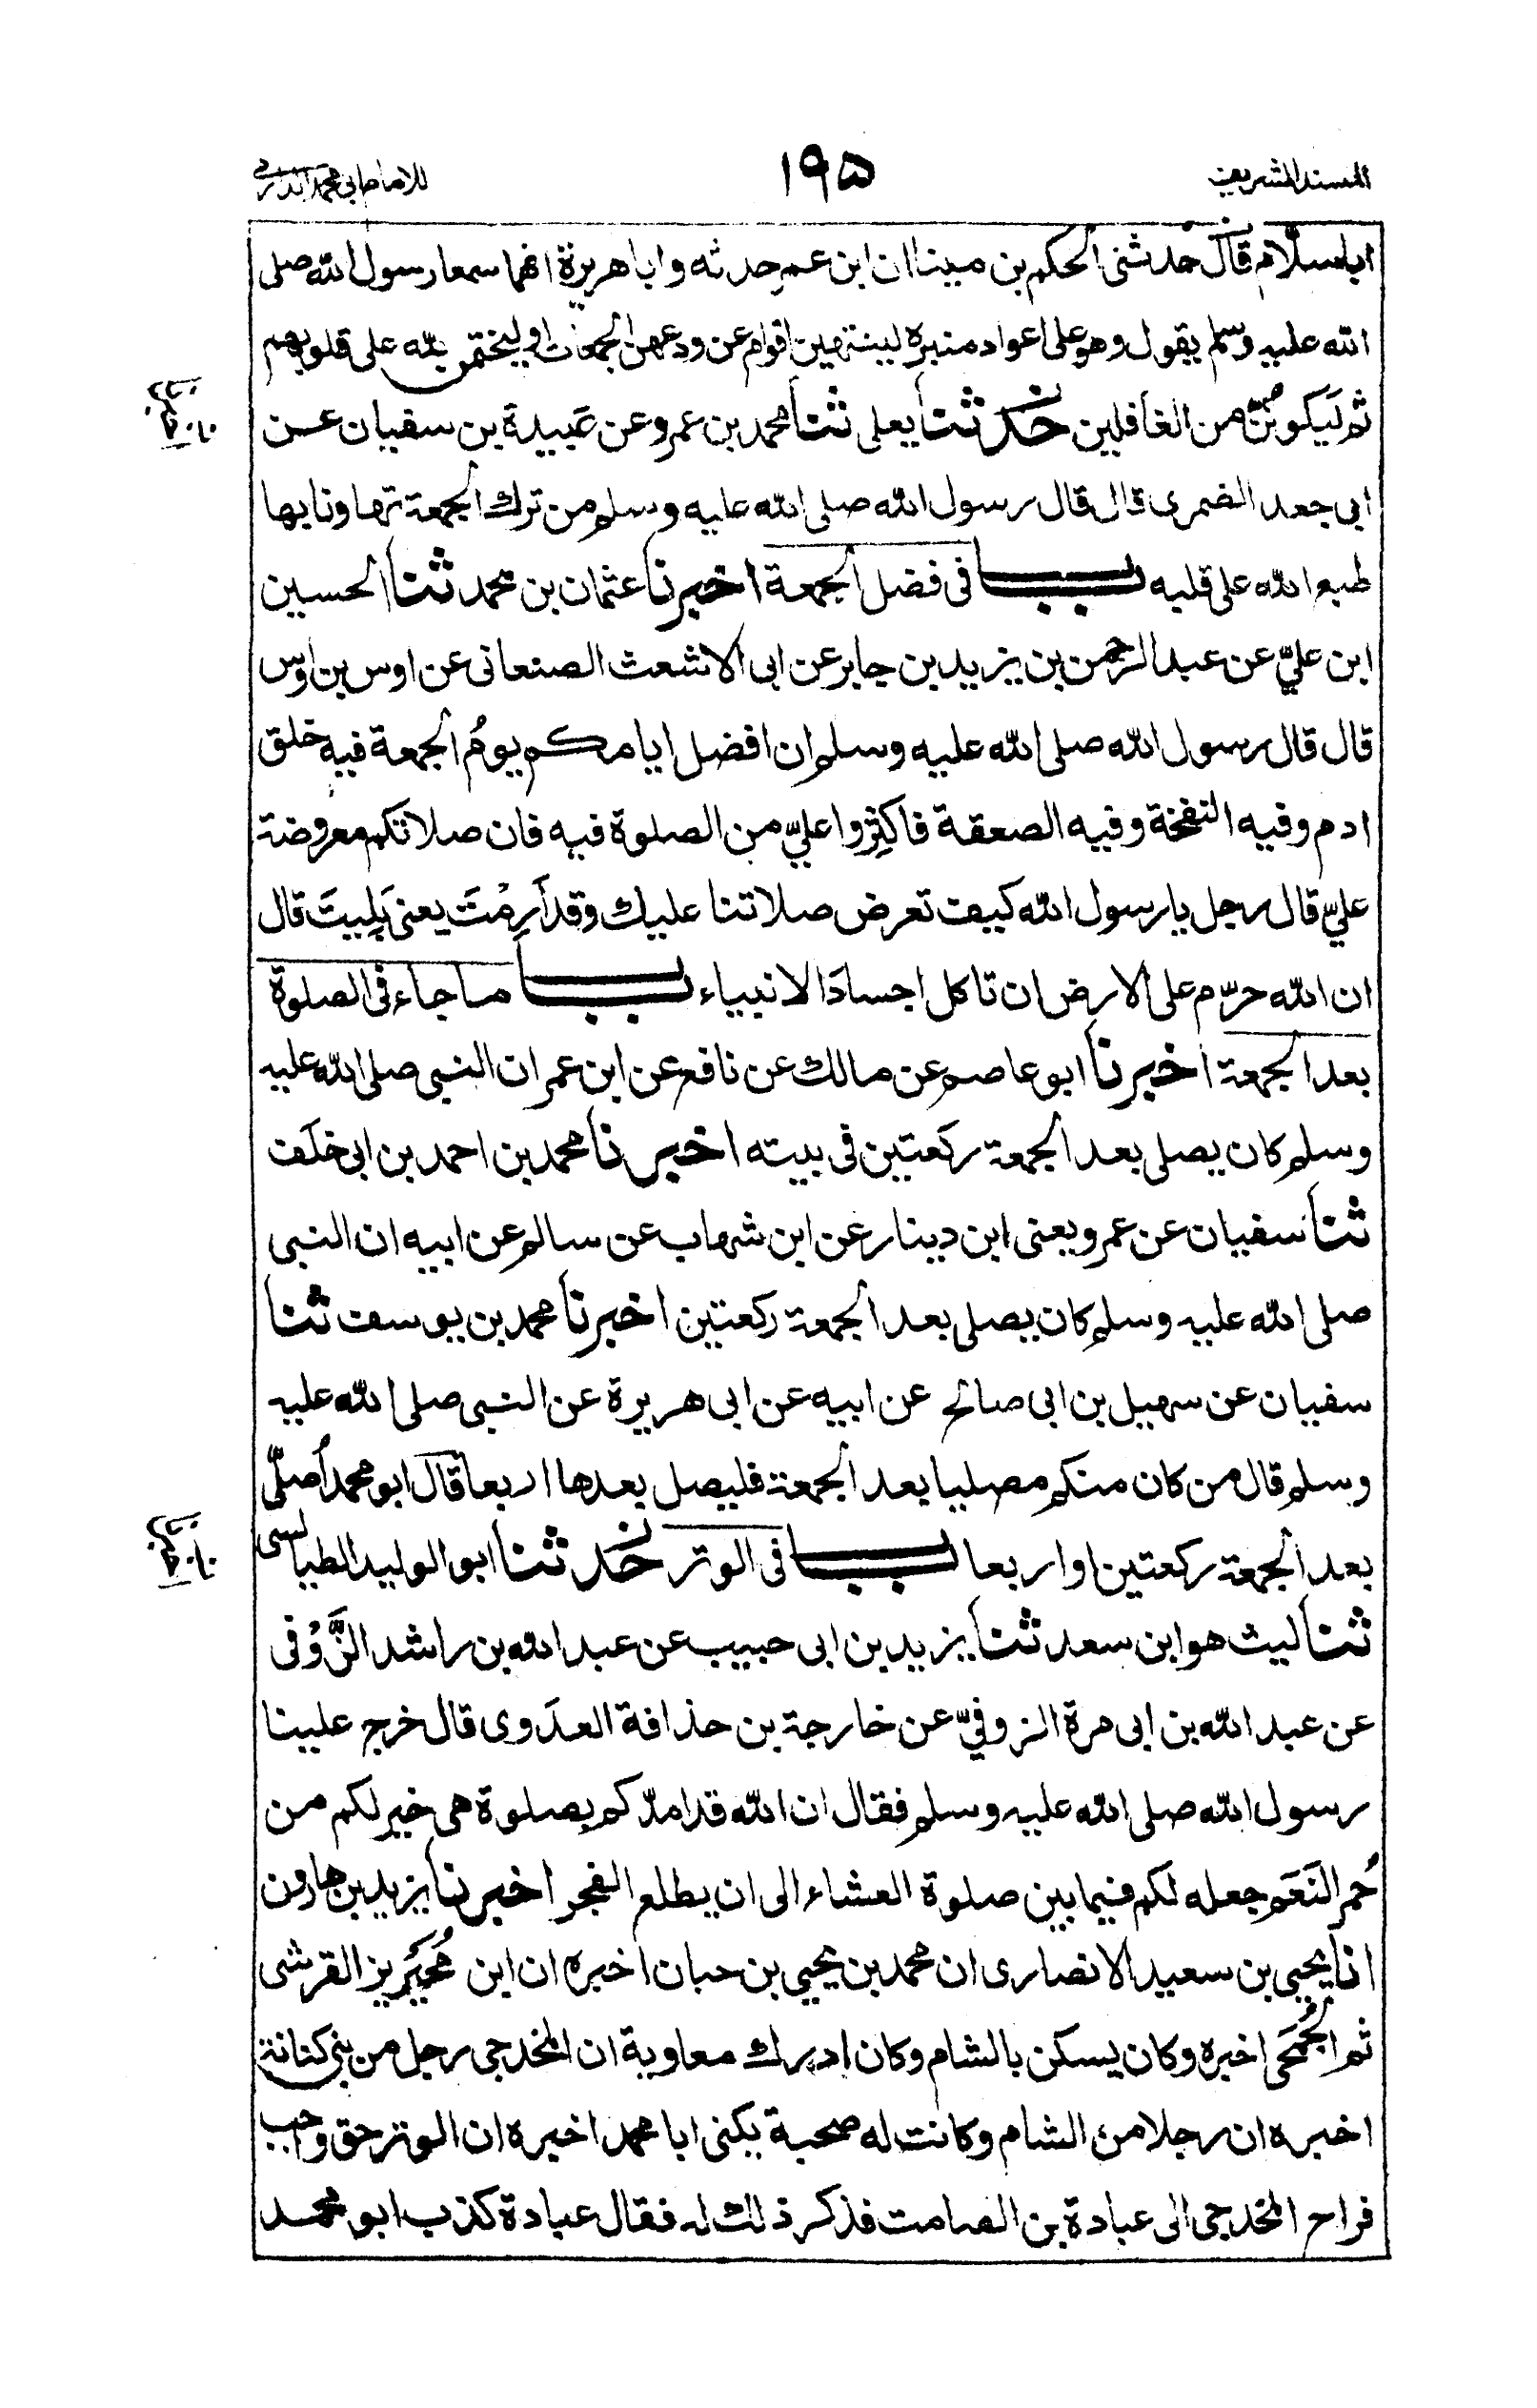 المسند الشريف ١٩٥ للامام ابي محمد الدارمي
ابا سلام قال حدثني الحكم بن مينا ان ابن عمر حدثه و ابا هريرة انهما سمعا رسول الله صلى
الله عليه وسلم يقول وهو على اعواد منبره لينتهين اقوام عن ودعهن الجمعات او ليختمن الله على قلوبهم
ثم لَيَكونُنّ من الغافلين حَدثنا يعلى ثنا محمد بن عمرو عن عَبيدة بن سفيان عن
ابي جعد الضمري قال قال رسول الله صلى الله عليه وسلم من ترك الجمعة تهاونا بها
طبع الله على قلبه باب في فضل الجمعة اخبرنا عثمان بن محمد ثنا الحسين
ابن عليّ عن عبد الرحمن بن يزيد بن جابر عن ابي الاشعث الصنعاني عن اوس بن اوس
قال قال رسول الله صلى الله عليه وسلم ان افضل ايامكم يومُ الجمعة فيه خلق
ادم وفيه النفخة وفيه الصعقة فاكثِروا عليّ من الصلوة فيه فان صلاتكم معروضة
عليّ قال رجل يا رسول الله كيف تعرض صلاتنا عليك وقد اَرِمْتَ يعني بَلِيتَ قال
ان الله حرّم على الارض ان تاكل اجسادَ الانبياء باب ما جاء في الصلوة
بعد الجمعة اخبرنا ابو عاصم عن مالك عن نافع عن ابن عمر ان النبي صلى الله عليه
وسلم كان يصلي بعد الجمعة ركعتين في بيته اخبرنا محمد بن احمد بن ابي خلَف
ثنا سفيان عن عمرو يعني ابن دينار عن ابن شهاب عن سالم عن ابيه ان النبي
صلى الله عليه وسلم كان يصلي بعد الجمعة ركعتين اخبرنا محمد بن يوسف ثنا
سفيان عن سهيل بن ابي صالح عن ابيه عن ابي هريرة عن النبي صلى الله عليه
وسلم قال من كان منكم مصليا بعد الجمعة فليصل بعدها اربعا قال ابو محمد اُصلّي
بعد الجمعة ركعتين او اربعا باب في الوتر حَدثنا ابو الوليد الطيالسي
ثنا ليث هو ابن سعد ثنا يزيد بن ابي حبيب عن عبد الله بن راشد الزَّوْفي
عن عبد الله بن ابي مرة الزوفيّ عن خارجة بن حذافة العدَوي قال خرج علينا
رسول الله صلى الله عليه وسلم فقال ان الله قد امدّكم بصلوة هي خير لكم من
حُمر النَعَم جعله لكم فيما بين صلوة العشاء الى ان يطلع الفجر اخبرنا يزيد بن هارون
انا يحيى بن سعيد الانصاري ان محمد بن يحيى بن حبان اخبره ان ابن مُحَيْرِيز القرشي
ثم الجُمَحي اخبره وكان يسكن بالشام وكان ادرك معاوية ان المخدجي رجل من بني كنانة
اخبره ان رجلا من الشام وكانت له صحبة يكنى ابا محمد اخبره ان الوتر حق واجب
فراح المخدجي الى عبادة بن الصامت فذكر ذلك له فقال عبادة كذب ابو محمد